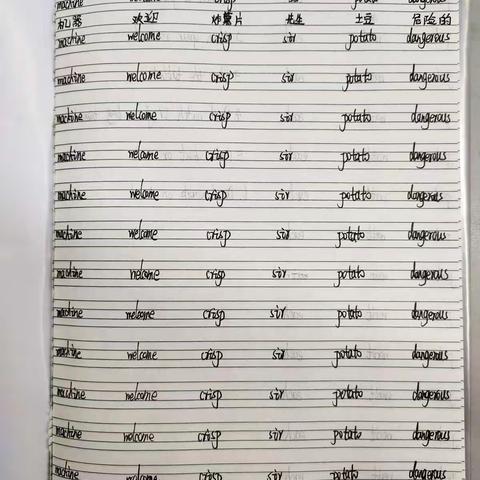 machine welcome crisp sir potato dangerous
机器 欢迎 炸薯片 先生 土豆 危险的
machine welcome crisp sir potato dangerous
machine welcome crisp sir potato dangerous
machine welcome crisp sir potato dangerous
machine welcome crisp sir potato dangerous
machine welcome crisp sir potato dangerous
machine welcome crisp sir potato dangerous
machine welcome crisp sir potato dangerous
machine welcome crisp sir potato dangerous
machine welcome crisp sir potato dangerous
machine welcome crisp sir potato dangerous
machine welcome crisp sir potato dangerous
machine welcome crisp sir potato dangerous